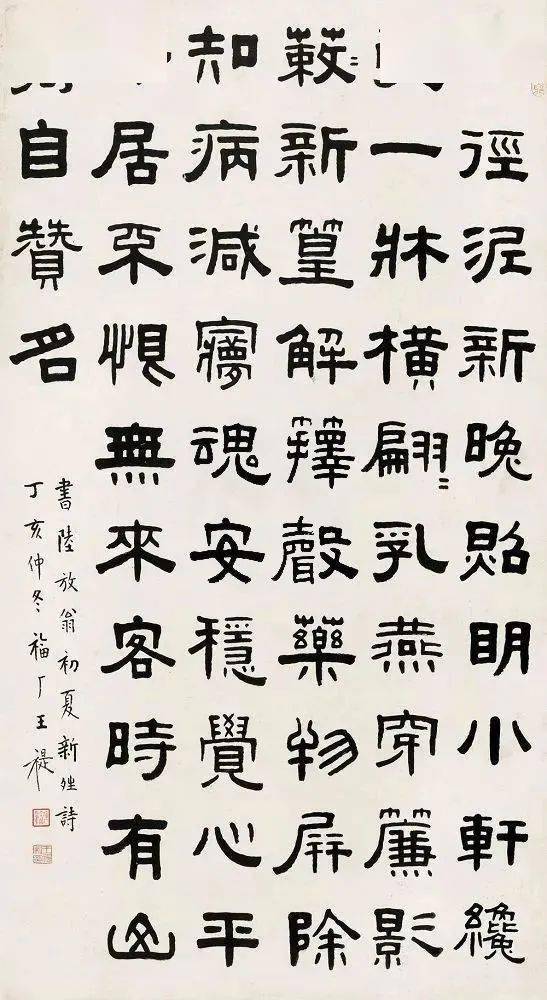 徑泥新晚照明小軒纔
一牀橫翩〻乳燕穿簾影
蔌〻新篁解籜聲藥物屏除
知病減夢魂安穩覺心平
居不恨無來客時有山
自贊名
書陸放翁初夏新夝詩
丁亥仲冬福厂王禔